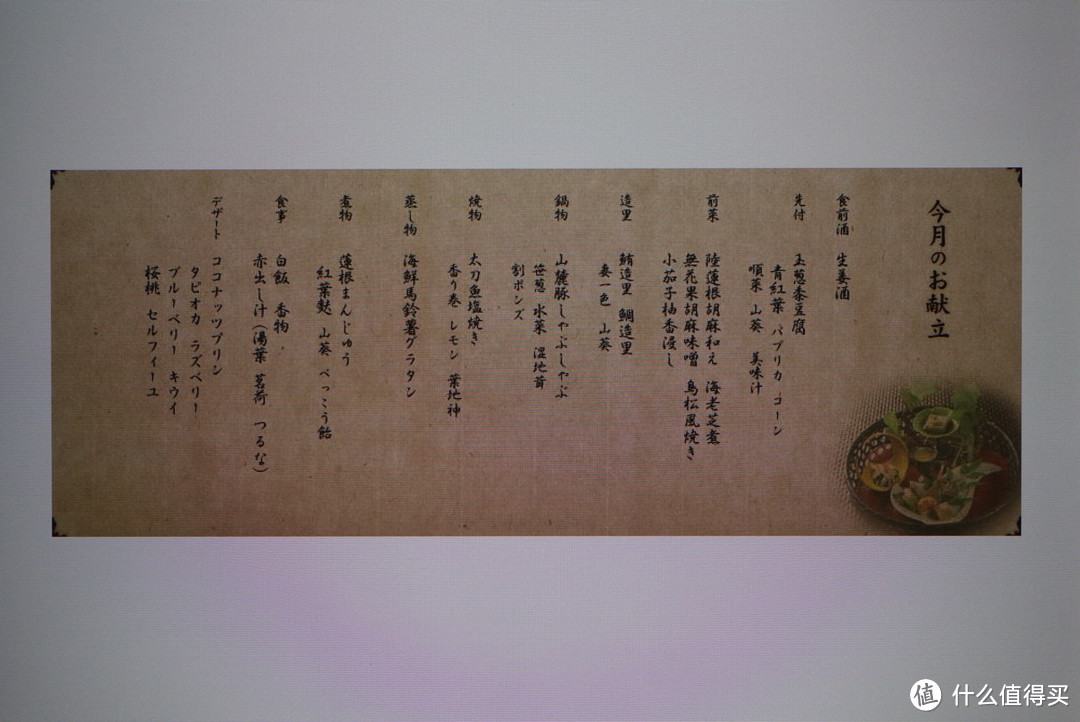 今月のお献立
食前酒 生姜酒
先付 玉葱黍豆腐
青紅葉 パプリカ コーン
順菜 山葵 美味汁
前菜 陸蓮根胡麻和え 海老芝煮
無花果胡麻味噌 鳥松風焼き
小茄子柚香浸し
造里 鮪造里 鯛造里
妻一色 山葵
鍋物 山麓豚しゃぶしゃぶ
笹葱 水菜 湿地茸
割ポンズ
焼物 太刀魚塩焼き
香り巻 レモン 葉地神
蒸し物 海鮮馬鈴薯グラタン
煮物 蓮根まんじゅう
紅葉麩 山葵 べっこう飴
食事 白飯 香物
赤出し汁(湯葉 茗荷 つるな)
デザート ココナッツプリン
タピオカ ラズベリー
ブルーベリー キウイ
桜桃 セルフィーユ
值 什么值得买